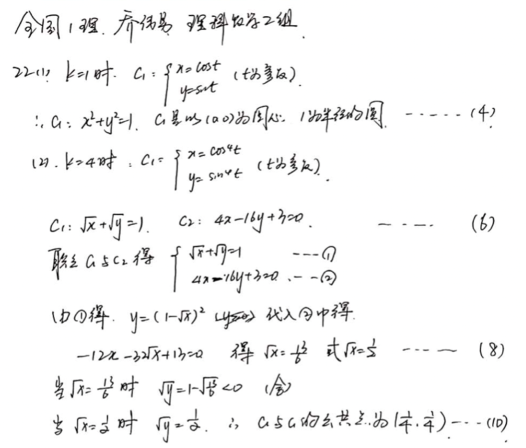 全国1理. 乔伟易 理科数学2组
22(1). k=1时. C₁: { x=cost y=sint (t为参数).
∴ C₁: x²+y²=1. C₁是以(0,0)为圆心. 1为半径的圆. ------ (4)
(2). k=4时. C₁: { x=cos⁴t y=sin⁴t (t为参数).
C₁: √x+√y=1. C₂: 4x-16y+3=0. ---- (6)
联立C₁与C₂得 { √x+√y=1 ---① 4x-16y+3=0. --②
由①得. y=(1-√x)² 代入②中得.
-12x-32√x+13=0 得 √x=13/6 或√x=1/2 ----- (8)
当√x=13/6时 √y=1-√13/6<0 (舍)
当√x=1/2时 √y=1/2. ∴ C₁与C₂的公共点为(1/4, 1/4) --- (10)